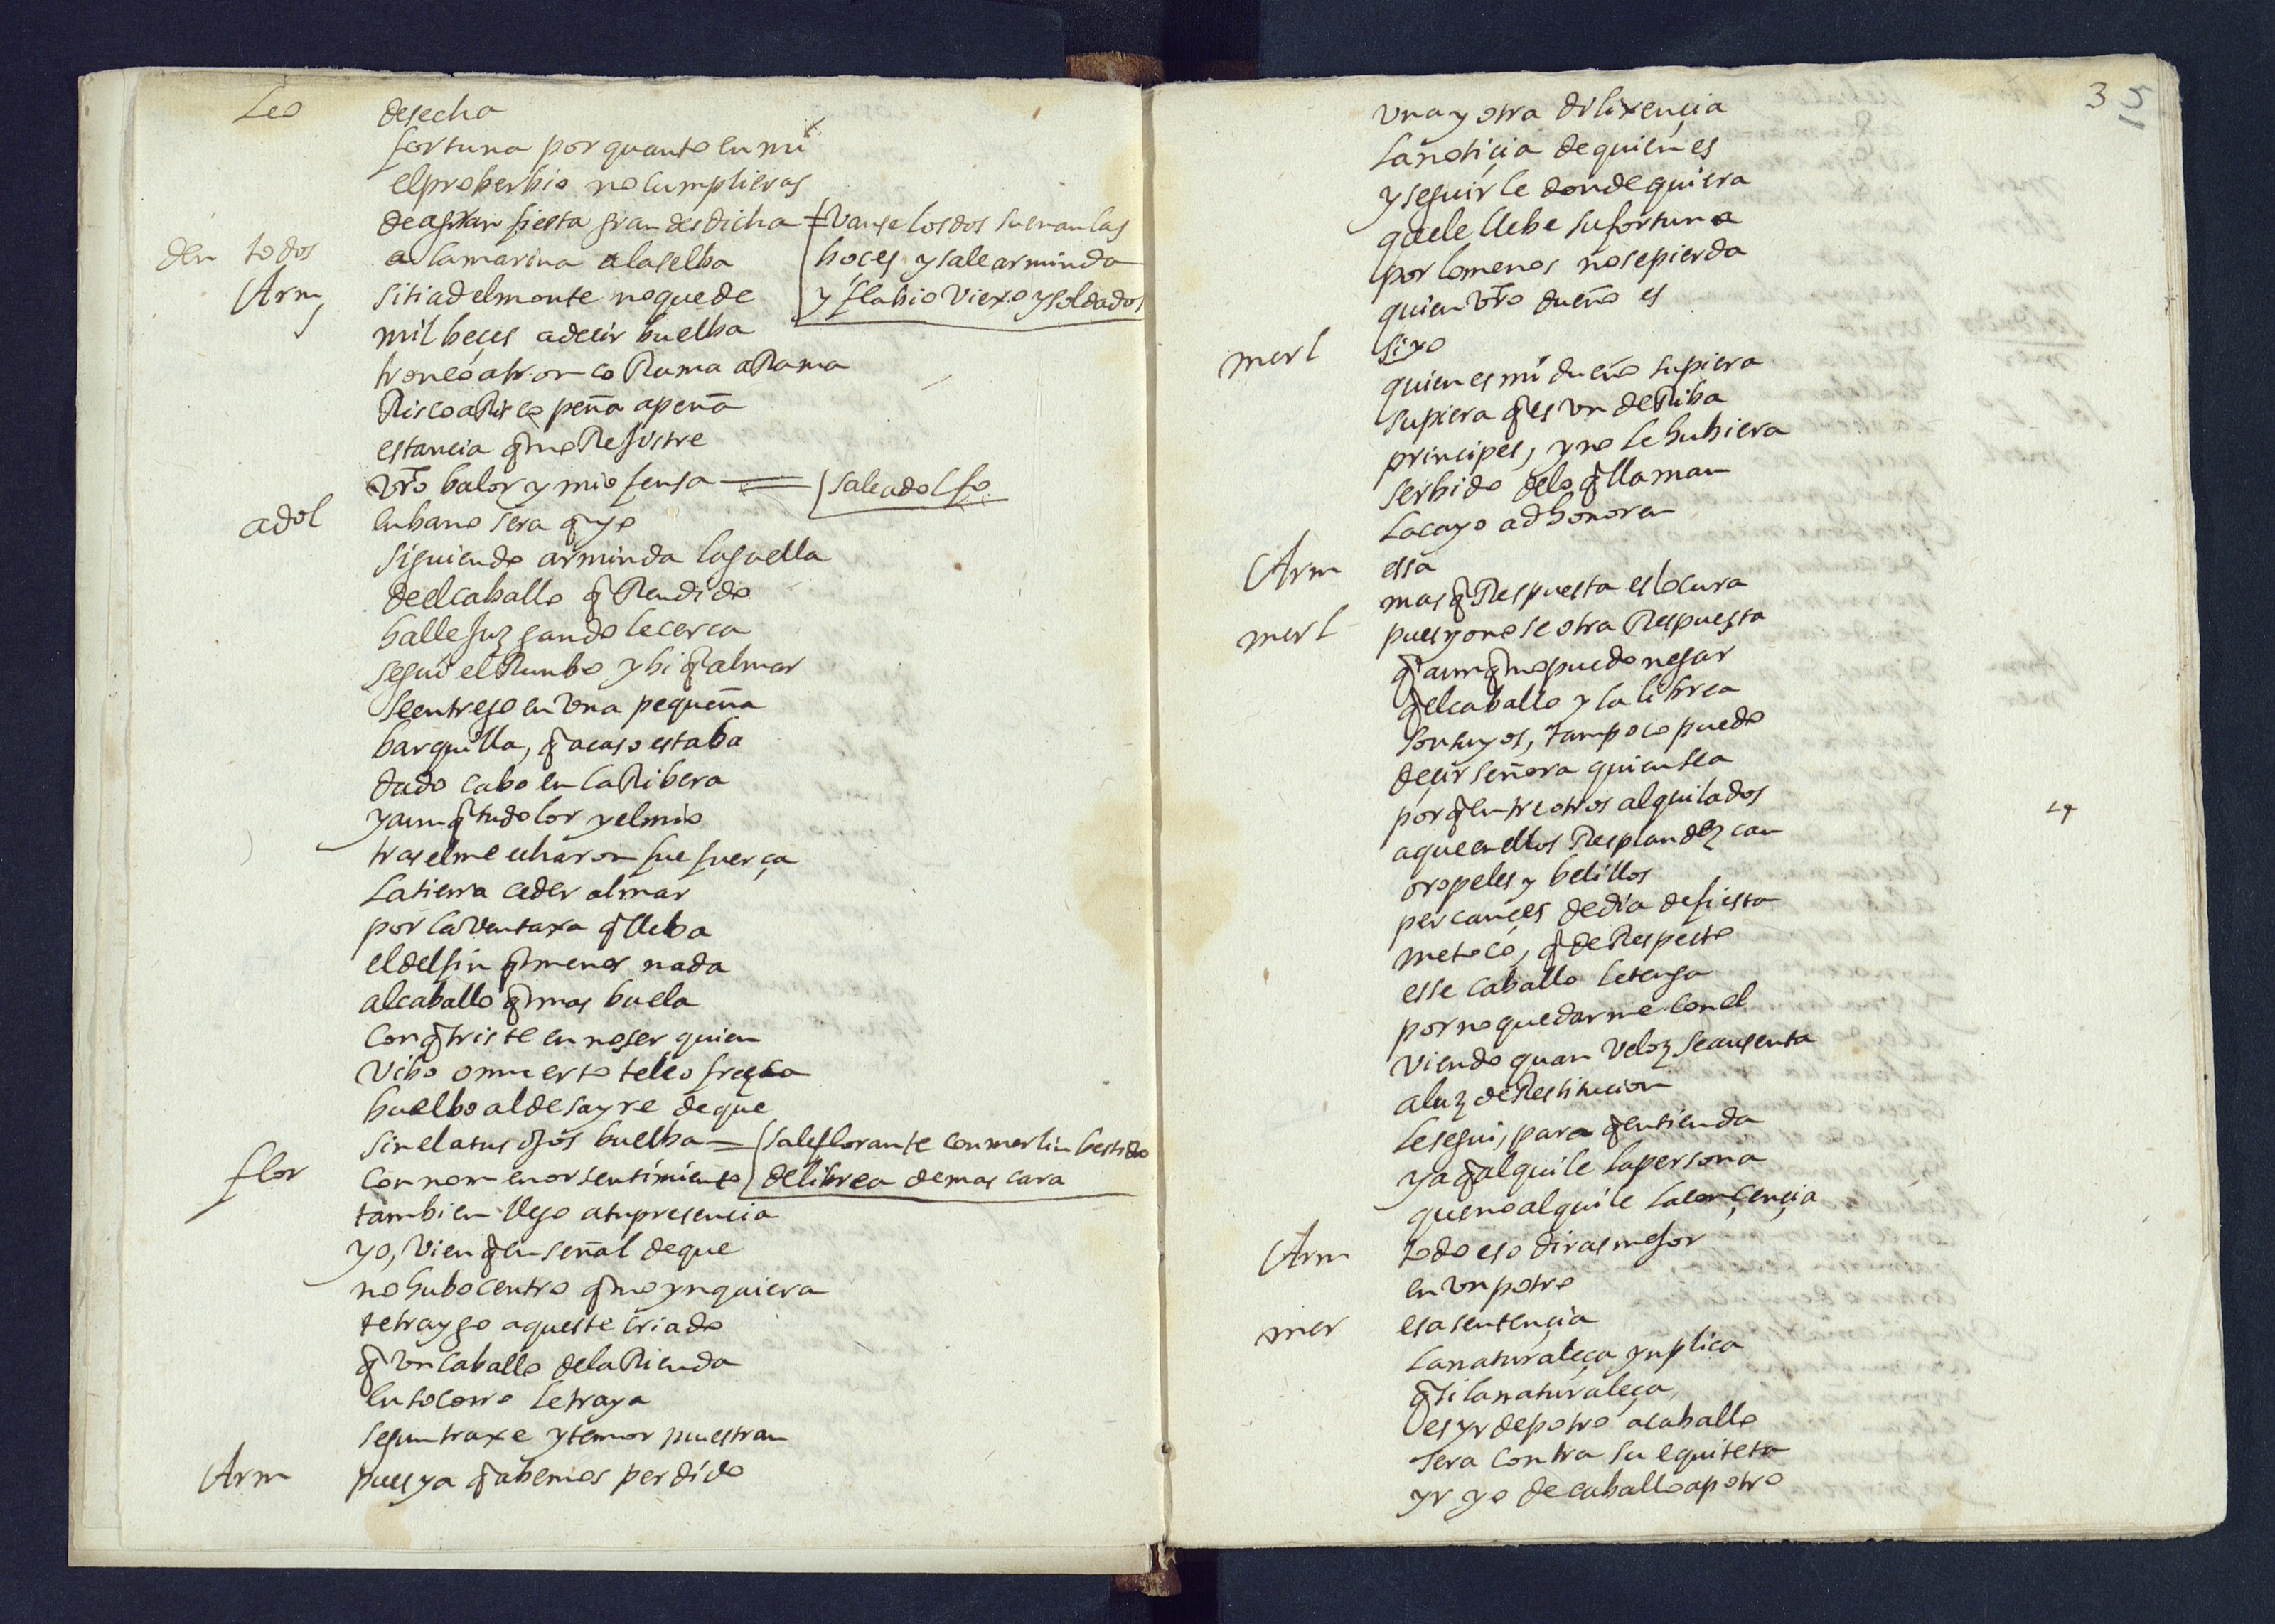 Leo desecha
fortuna por quanto en mi
el proberbio no cumplieras
de a gran fiesta gran desdicha = Vanse los dos suenan las
den todos a la marina a la selba boçes y sale arminda
Arm sitiad el monte no quede y flabio Viexo y soldados
mil beçes a deçir buelba
tronco a tronco Rama a Rama
Risco a Risco peña a peña
estancia q̃ no Rejistre
vr̃o balor y mi ofensa = sale adolfo
adol en bano sera q̃ yo
siguiendo arminda la guella
de el caballo q̃ Rendido
halle juzgandole cerca
segui el Rumbo y bi q̃ al mar
se entrego en Vna pequeña
barquilla, q̃ acaso estaba
dado cabo en la Ribera
y aunq̃ tu dolor y el mio
tras el me echaron fue fuerça
la tierra ceder al mar
por la Ventaxa q̃ lleba
el delfin q̃ menos nada
al caballo q̃ mas buela
con q̃ triste en no ser quien
Vibo o muerto te le ofrezca
buelbo al desayre de que
sin el a tus ojos buelba = sale florante con merlin bestido
flor con no menor sentimiento de librea de mascara
tambien llego a tu presencia
yo, Vien q̃ en señal de que
no hubo centro q̃ no ynquiera
te traygo aqueste criado
q̃ Vn caballo de la Rienda
en socorro le traya
segun traxe y temor muestran
Arm pues ya q̃ abemos perdido
3 5
Vna y otra dilixençia
la notiçia de quien es
y seguirle donde quiera
que le llebe su fortuna
por lo menos no se pierda
quien vr̃o dueño es
merl si yo
quien es mi dueño supiera
supiera q̃ es Vn deRiba
principes, y no le hubiera
serbido de lo q̃ llaman
lacayo ad honorem
Arm essa
mas q̃ Respuesta es locura
merl pues yo no se otra Respuesta
q̃ aunq̃ no puedo negar
q̃ el caballo y la librea
son suyos, tampoco puedo
deçir señora quien sea
porq̃ entre otros alquilados
a que en ellos Resplandezcan
oropeles y belillos
percançes de dia de fiesta
me toco, q̃ de Respecto
esse caballo le tenga
por no quedarme con el
Viendo quan Veloz se ausenta
a luz de Restitucion
le segui, para q̃ entienda
ya q̃ alquile la persona
que no alquile la conçençia
Arm todo eso diras mejor
en Vn potro
mer esa sentençia
la naturaleça ynplica
q̃ si la naturaleça
es yr de potro a caballo
sera contra su equiteta
yr yo de caballo a potro